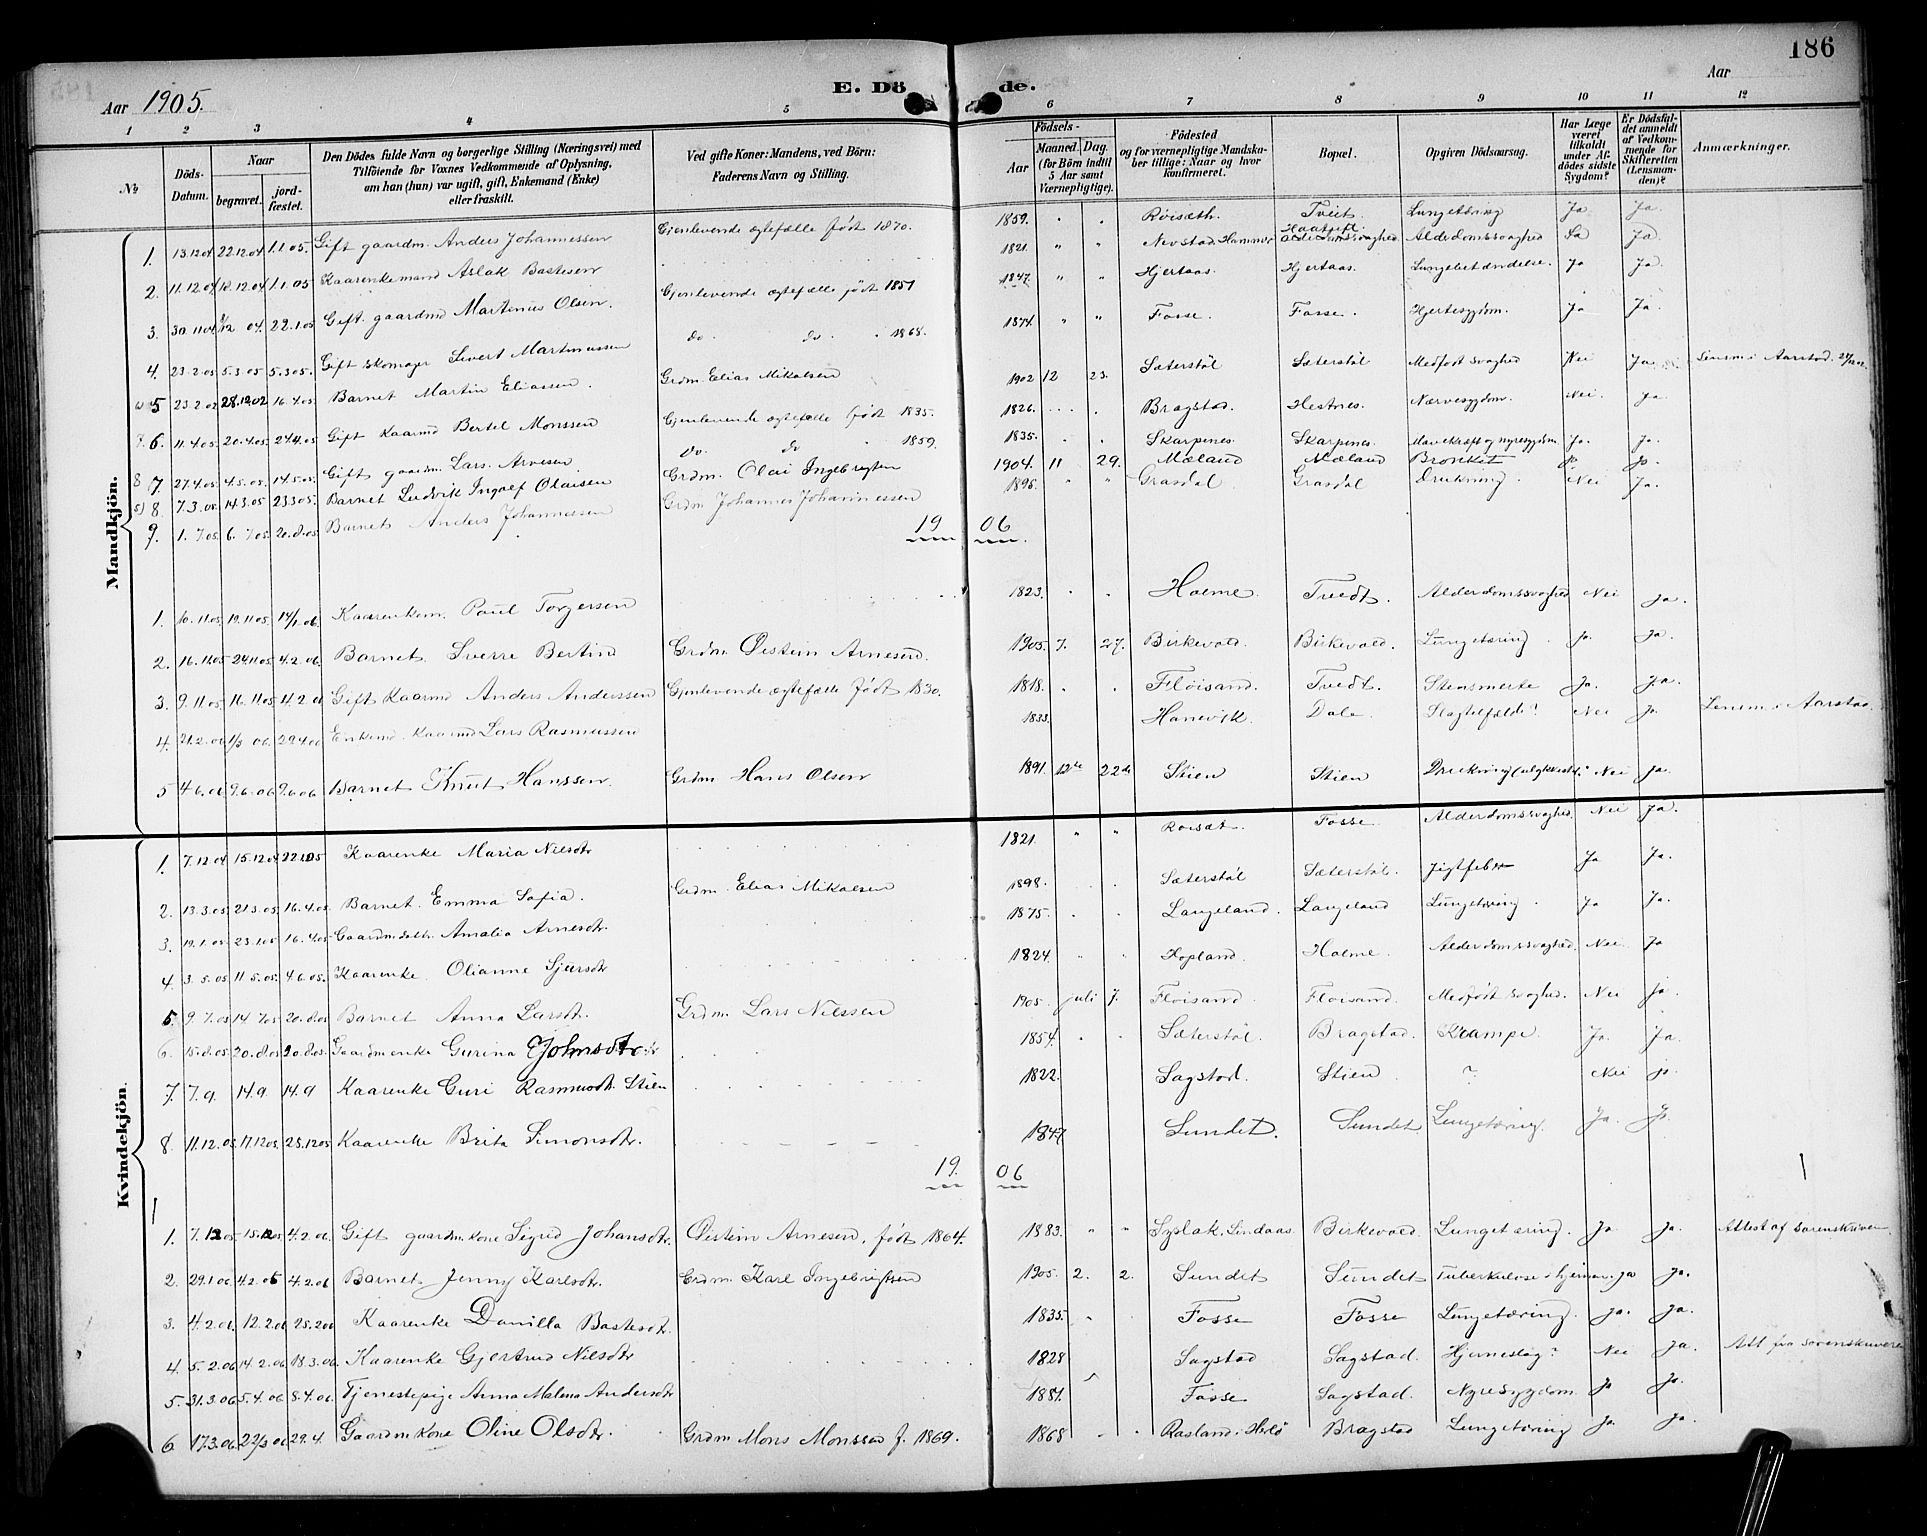 186
Aar 1905.
E. Dö de.
Aar
1 2 3 4 5 6 7 8 9 10 11 12
No
Döds-Datum.
Naar
begravet.
jordfæstet.
Den Dödes fulde Navn og borgerlige Stilling (Næringsvei) med
Tilföiende for Voxnes Vedkommende af Oplysning,
om han (hun) var ugift, gift, Enkemand (Enke)
eller fraskilt.
Ved gifte Koner: Mandens, ved Börn:
Faderens Navn og Stilling.
Födsels-
Aar
Maaned. Dag.
(for Börn indtil
5 Aar samt
Værnepligtige).
Födested
og for værnepligtige Mandskaber tillige: Naar og hvor
konfirmeret.
Bopæl.
Opgiven Dödsaarsag.
Har Læge
været
tilkaldt
under Afdödes sidste
Sygdom?
Er Dödsfaldet anmeldt
af Vedkommende for
Skifteretten
(Lensmanden)?
Anmærkninger.
Mandkjön.
1. 13.12.04 22.12.04 1.1.05. Gift gaardm. Anders Johannessen Gjenlevende ægtefælle født 1870. 1859. Røisæth. Tveit. Lungetæring Ja Ja.
2. 11.12.04 18.12.04 1.1.05 Kaarenkemand Aslak Bastesen 1821. " " Nevstad, Hammer Alderdomssvaghed Ja Ja
3. 30.11.04 22.1.05 Gift. gaardmd Martinus Olsen. Gjenlevende ægtefælle født 1851 1847. " " Hjertaas. Hjertaas. Lungebetændelse. Ja Ja
4. 23.2.05 5.3.05 5.3.05. Gift skomager Sivert Martinussen do. do. 1868. 1874. " " Fosse. Fosse. Hjertesygdom. Ja Ja.
5 23.2.02 28.12.02 16.4.05 Barnet Martin Eliassen. Grdm. Elias Mikalsen 1902 12 23. Sæterstøl Sæterstøl Medfødt svaghed Nei Ja Lensm. i Aarstad.
6. 11.4.05 20.4.05 Gift Kaarmd Bertel Monssen Gjenlevende ægtefælle født 1835. 1826. Bragstad. Hestnes. Nærvesygdom. Nei. Ja
7. 27.4.05 4.5.05. 14.5.05. Gift gaardm. Lars Arnesen do. do 1859. 1835. Skarpenes. Skarpenes. Mavekræft og nyresygdom Ja. Ja.
8. 7.3.05 14.3.05 23.3.05. Barnet Ludvik Ingolf Olaisen Grdm. Olai Ingebrigtsen 1904. 11 29. Mæland Mæland Bronkit Ja. Ja.
9. 1.7.05 6.7.05 20.8.05 Barnet Anders Johannessen Grdm Johannes Johannessen 1895. " " Grasdal Grasdal Drukning. Nei Ja.
19 06
1. 10.11.05. 19.11.05. 14/1.06. Kaarenkem. Paul Torgersen 1823. Holme. Tvedt. Alderdomssvaghed Nei Ja.
2. 16.11.05 24.11.05 4.2.06. Barnet. Sverre Bertin Grdm. Østein Arnesen. 1905. 7. 27. Birkevold. Birkevold. Lungetæring. Ja. Ja.
3. 9.11.05. 16.11.05 4.2.06 Gift Kaarmd Anders Anderssen Gjenlevende ægtefælle født 1830. 1818. Fløisand. Tvedt. Stensmerte Ja. Ja.
4. 21.2.06 1/3 06. 29.4.06 Enkemd. Kaarmd Lars Rasmussen 1833. Hanevik. Dale. Slagtilfælde? Nei Ja Lensm. i Aarstad.
5 4.6.06 9.6.06 9.6.06 Barnet Knut Hanssen. Grdm Hans Olsen 1891. 12te 22de Stien Stien Drukning Nei Ja.
Kvindekjön.
1. 7.12.04 15.12.04 22.1.05 Kaarenke Maria Nilsdtr 1821. " " Roisæt. Fosse. Alderdomssvaghed. Nei Ja.
2. 13.3.05. 21.3.05. 16.4.05 Barnet. Emma Sofia. Grdm. Elias Mikalsen 1898. Sæterstøl Sæterstøl. Jigtfeber Ja Ja.
3. 19.1.05. 23.1.05 16.4.05 Gaardmdatter Amalia Arnesdtr. 1875. Langeland. Langeland Lungetæring. Ja Ja.
4. 3.5.05 11.5.05. 4.6.05. Kaarenke. Olianne Sjursdtr 1824. Hopland. Holme. Alderdomssvaghed. Nei Ja
5. 9.7.05 14 7.05 20.8.05 Barnet Anna Larsdtr. Grdm. Lars Nilssen 1905. juli 7. Fløisand. Fløisand. Medfødt svaghed. Nei Ja.
6. 15.8.05. 20.8.05 20.8.05. Gaardmenke Gurina Johnsdtr 1854. Sæterstøl. Bragstad. Krampe. Ja. Ja.
7. 7.9. 14.9. 14.9 Kaarenke Guri Rasmusdtr Stien 1822. Sagstad. Stien ? Nei Ja.
8. 11.12.05. 17.12.05. 25.12.05 Kaarenke Brita Simonsdtr. 1847 Sundet. Sundet. Lungetæring. Ja. Ja.
19. 06
1. 7.12.05 15.12.05 4.2.06. Gift gaardmkone Sigrid Johansdtr. Østein Arnesen, født 1864. 1883. " " Syslak, Lindaas. Birkevold. Lungetæring. Ja Ja. Attest af sorenskriveren
2. 29.1.06 4.2.06 4.2.06 Barnet Jenny Karlsdtr. Grdm. Karl Ingebrigtsen 1905. 2. 2. Sundet Sundet Tuberkulose i hjernen. Ja Ja.
3. 4.2.06. 12.2.06 25.2.06 Kaarenke Danilla Bastesdtr. 1835. Fosse Fosse Lungetæring. Ja. Ja.
4. 5.2.06 14.2.06 18.3.06 Kaarenke Gjertrud Nilsdtr 1828 Sagstad Sagstad. Hjerneslag? Nei Ja. Att fra sorenskriveren
5. 31.3.06 5.4.06 8.4.06. Tjenestepige Anna Malena Andersdtr 1881. Fosse Sagstad. Nyresygdom Ja Ja.
6. 17.3.06 22/3 06 29.4. Gaardmkone Oline Olsdtr. Grdm Mons Monssen f. 1869. 1868 Rasland i Herlø Bragstad Lungetæring Ja. Ja.